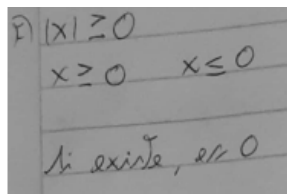 F) |x| ≥ 0
x ≥ 0 x ≤ 0
Si existe, es 0